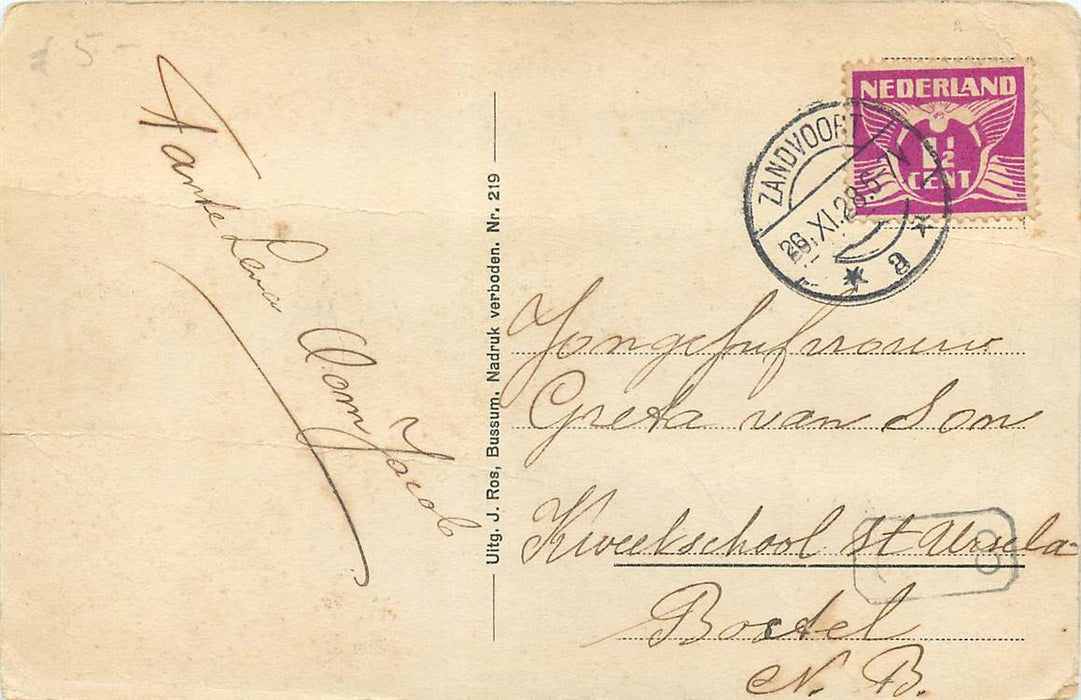 5-
Tante Lena
Oom Jacob
Uitg. J. Ros, Bussum, Nadruk verboden. Nr. 219
NEDERLAND
1½
CENT
ZANDVOORT
26.XI.28.
a
Jongejufvrouw
Greta van Son
Kweekschool St Ursula
Boxtel
N. B.